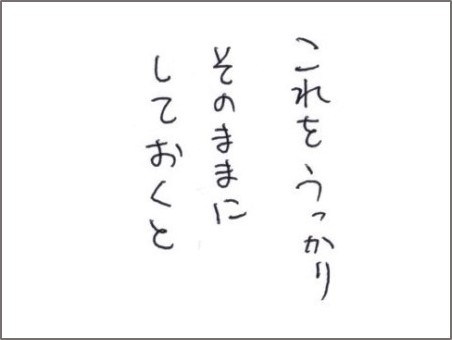 これをうっかり
そのままに
しておくと